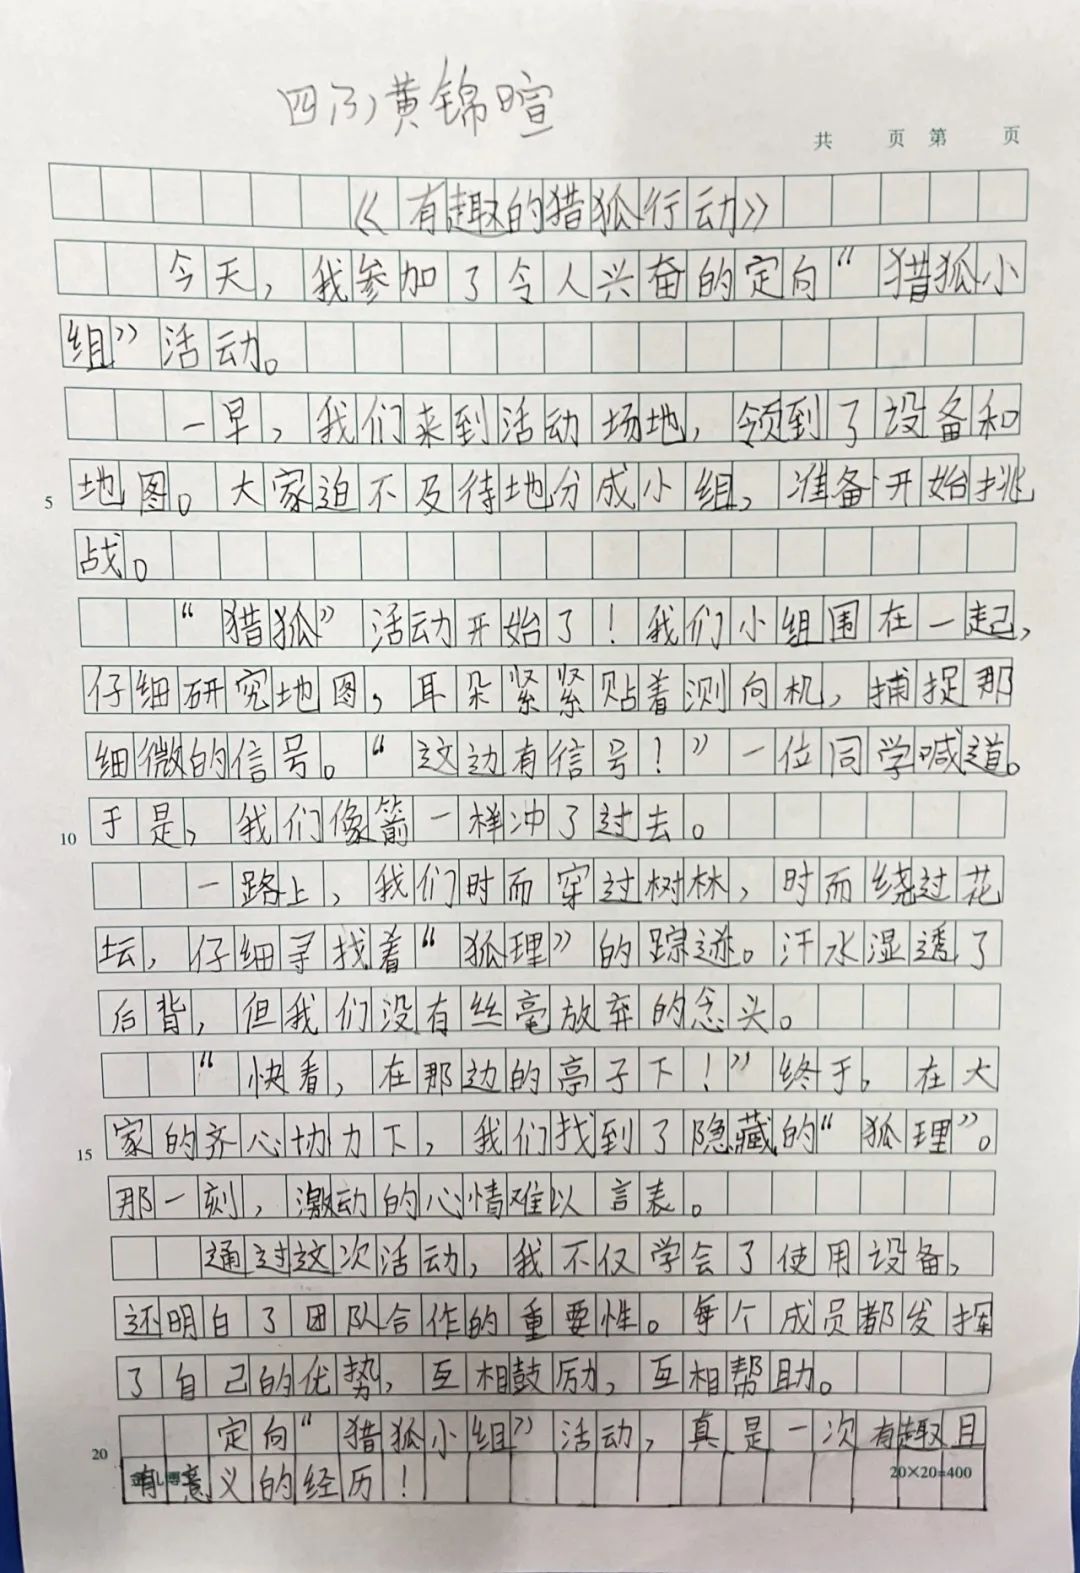 四(3)黄锦暄
共 页 第 页
《有趣的猎狐行动》
今天，我参加了令人兴奋的定向“猎狐小
组”活动。
一早，我们来到活动场地，领到了设备和
5 地图。大家迫不及待地分成小组，准备开始挑
战。
“猎狐”活动开始了！我们小组围在一起，
仔细研究地图，耳朵紧紧贴着测向机，捕捉那
细微的信号。“这边有信号！”一位同学喊道。
10 于是，我们像箭一样冲了过去。
一路上，我们时而穿过树林，时而绕过花
坛，仔细寻找着“狐理”的踪迹。汗水湿透了
后背，但我们没有丝毫放弃的念头。
“快看，在那边的亭子下！”终于，在大
15 家的齐心协力下，我们找到了隐藏的“狐理”。
那一刻，激动的心情难以言表。
通过这次活动，我不仅学会了使用设备，
还明白了团队合作的重要性。每个成员都发挥
了自己的优势，互相鼓励，互相帮助。
20 定向“猎狐小组”活动，真是一次有趣且
有意义的经历！
20×20=400